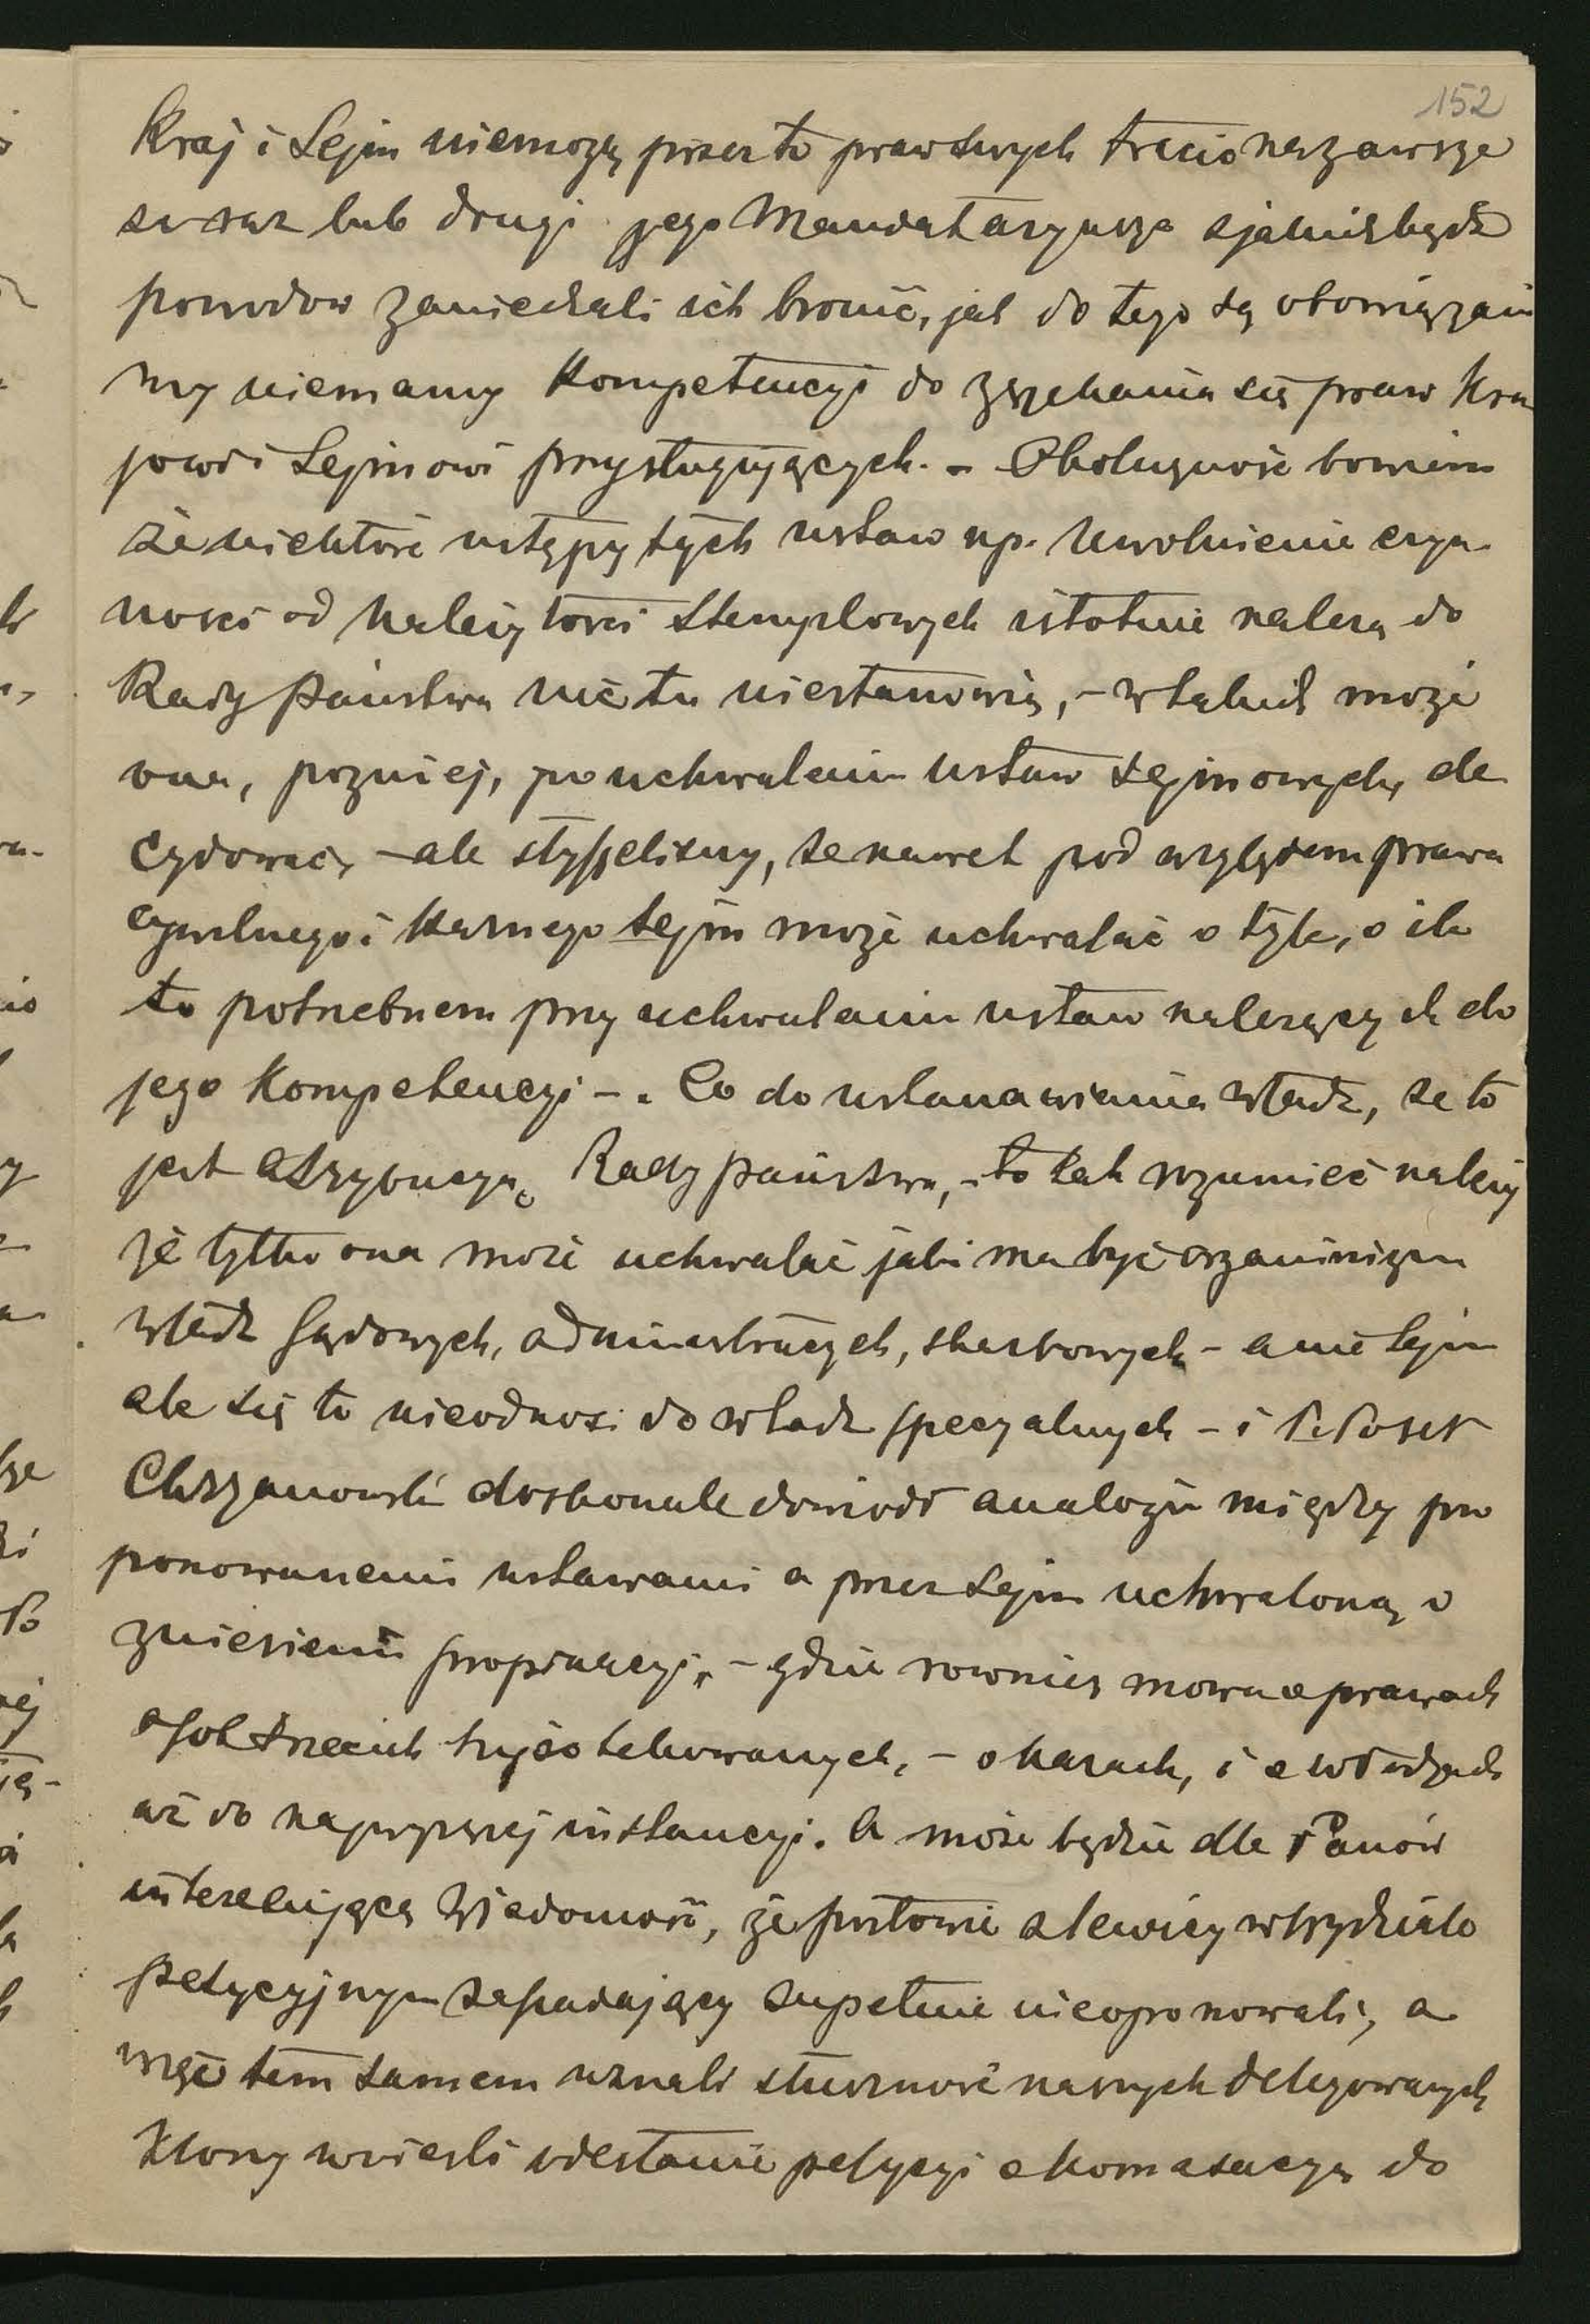 152
Kraj i Sejm niemogą przez to praw swych tracić nazawsze
że raz lub drugi jego Mandataryusze z jakichbądź
powodów zaniechali ich bronić, jak do tego są obowiązani
my niemamy Kompetencyi do zrzekania się praw Kra
jowi i Sejmowi przysługujących. – Okoliczność bowiem
że niektóre ustępy tych ustaw np. Uwolnienie czyn
ności od należytości stemplowych istotnie należą do
Rady państwa nic tu niestanowią, – w takich może
ona, pozniej, po uchwaleniu ustaw sejmowych, de
cydować, – ale słyszeliśmy, że nawet pod względem prawa
cywilnego i karnego Sejm może uchwalać o tyle, o ile
to potrzebnem przy uchwalaniu ustaw należących do
jego Kompetencyi –. Co do ustanawiania władz, że to
jest atrybucyą Rady państwa, – to tak rozumieć należy
że tylko ona może uchwalać jaki ma być organizm
władz sądowych, administracyjnych, skarbowych – a nie Sejm
ale się to nieodnosi do władz specyalnych – i P. Poseł
Chrzanowski doskonale dowiódł analogii między pro
ponowanemi ustawami a przez Sejm uchwaloną o
zniesieniu propinacyi, – gdzie rownież mowa o prawach
osób trzecich hypotekowanych, – o karach, i o władzach
aż do najwyższej instancyi. A może będzie dla Panów
interesującą Wiadomość, że posłowie z lewicy w Wydziale
petycyjnym zasiadający zupełnie nieoponowali, a
więc tem samem uznali słuszność naszych delegowanych
Ktorzy wnieśli odesłanie petycyi o komasacyą do